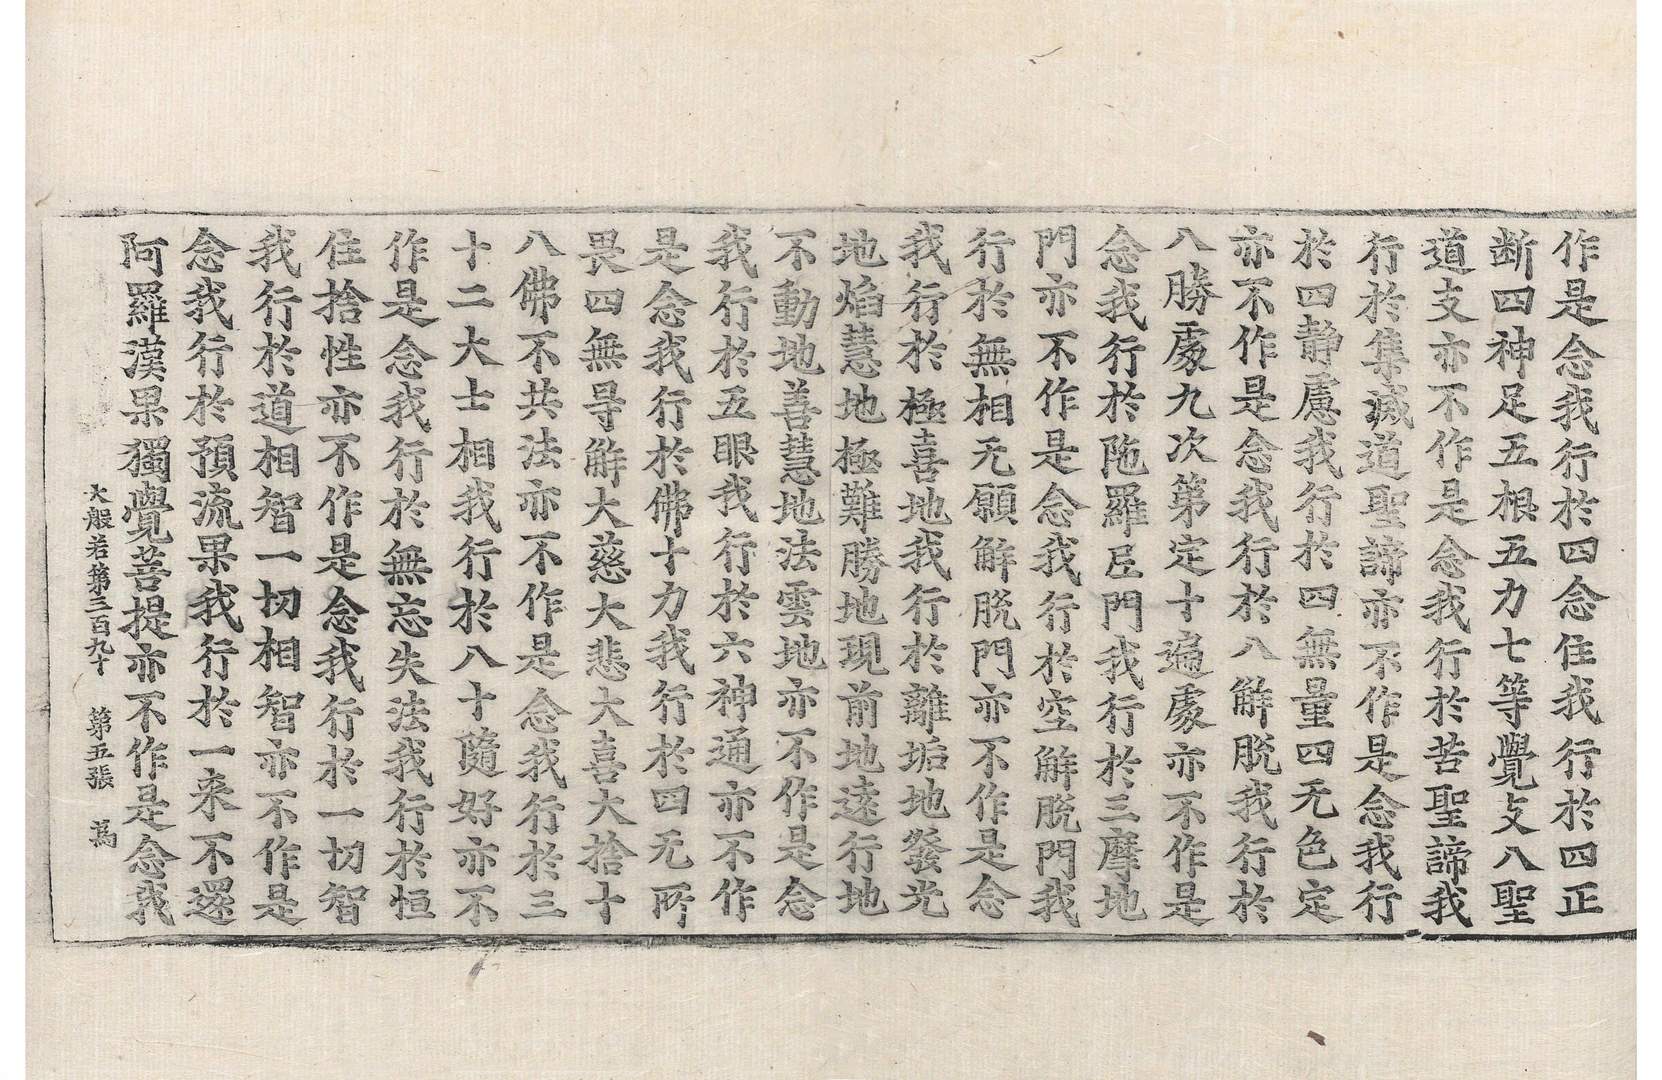 作是念我行於四念住我行於四正
断四神足五根五力七等覺支八聖
道支亦不作是念我行於苦聖諦我
行於集滅道聖諦亦不作是念我行
於四静慮我行於四無量四无色定
亦不作是念我行於八解脱我行於
八勝處九次第定十遍處亦不作是
念我行於陁羅尼門我行於三摩地
門亦不作是念我行於空解脱門我
行於無相无願解脱門亦不作是念
我行於極喜地我行於離垢地發光
地焰慧地極難勝地現前地遠行地
不動地善慧地法雲地亦不作是念
我行於五眼我行於六神通亦不作
是念我行於佛十力我行於四无所
畏四無导解大慈大悲大喜大捨十
八佛不共法亦不作是念我行於三
十二大士相我行於八十隨好亦不
作是念我行於無忘失法我行於恒
住捨性亦不作是念我行於一切智
我行於道相智一切相智亦不作是
念我行於預流果我行於一来不還
阿羅漢果獨覺菩提亦不作是念我
大般若第三百九十 第五張 為